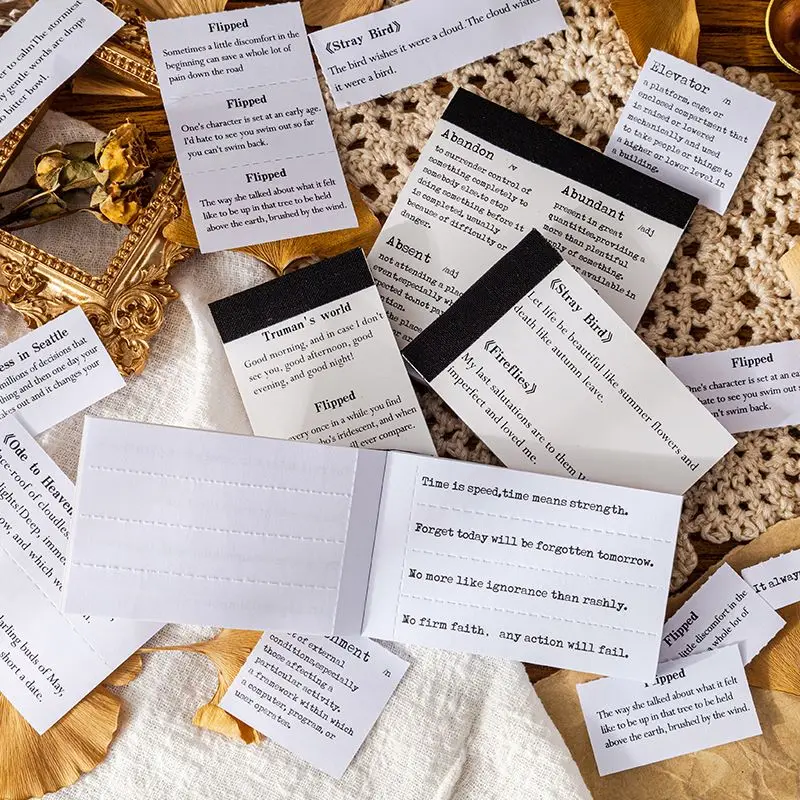 er to calmThe stormiest
ry gentle words are drops
to bitter bowl.
Flipped
Sometimes a little discomfort in the
beginning can save a whole lot of
pain down the road
Flipped
One's character is set at an early age.
I'd hate to see you swim out so far
you can't swim back.
Flipped
The way she talked about what it felt
like to be up in that tree to be held
above the earth, brushed by the wind.
《Stray Bird》
The bird wishes it were a cloud. The cloud wishes
it were a bird.
Elevator /n
a platform, cage, or
enclosed compartment that
is raised or lowered
mechanically and used
to take people or things to
a higher or lower level in
a building.
Abandon /v
to surrender control of
something completely to
somebody else;to stop
doing something before it
is completed, usually
because of difficulty or
danger.
Abundant /adj
present in great
quantities.providing a
more than plentiful
supply of something.
or available in
Absent /adj
not attending a place
event,especially
pected to.not pay
the place
because
Truman's world
Good morning, and in case I don't
see you, good afternoon, good
evening, and good night!
Flipped
every once in a while you find
who's iridescent, and when
will ever compare.
《Stray Bird》
Let life be beautiful like summer flowers and
death like autumn leave.
《Fireflies》
My last salutations are to them
imperfect and loved me.
ess in Seattle
millions of decisions that
thing and then one day your
out and it changes your
Flipped
One's character is set at an ea
hate to see you swim out
can't swim back.
《Ode to Heaven
ce-roof of cloudles
lights!Deep, imme
ow, and which we
arling buds of May,
short a date.
Time is speed,time means strength.
Forget today will be forgotten tomorrow.
No more like ignorance than rashly.
No firm faith, any action will fail.
nment /n
of external
conditions,especially
those affecting a
particular activity.
a framework within which
a computer, program,or
user operates.
It alway
Flipped
little discomfort in the
whole lot of
Flipped
The way she talked about what it felt
like to be up in that tree to be held
above the earth, brushed by the wind.